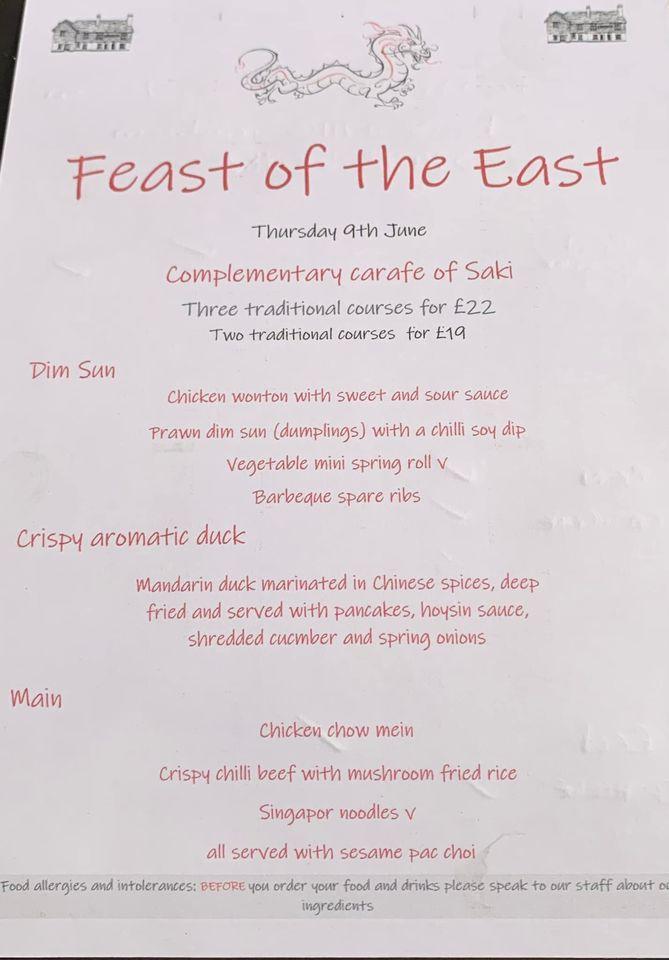 Feast of the East
Thursday 9th June
Complementary carafe of Saki
Three traditional courses for £22
Two traditional courses for £19
Dim Sun
Chicken wonton with sweet and sour sauce
Prawn dim sun (dumplings) with a chilli soy dip
Vegetable mini spring roll v
Barbeque spare ribs
Crispy aromatic duck
Mandarin duck marinated in Chinese spices, deep
fried and served with pancakes, hoysin sauce,
shredded cucmber and spring onions
Main
Chicken chow mein
Crispy chilli beef with mushroom fried rice
Singapor noodles v
all served with sesame pac choi
Food allergies and intolerances: BEFORE you order your food and drinks please speak to our staff about
ingredients